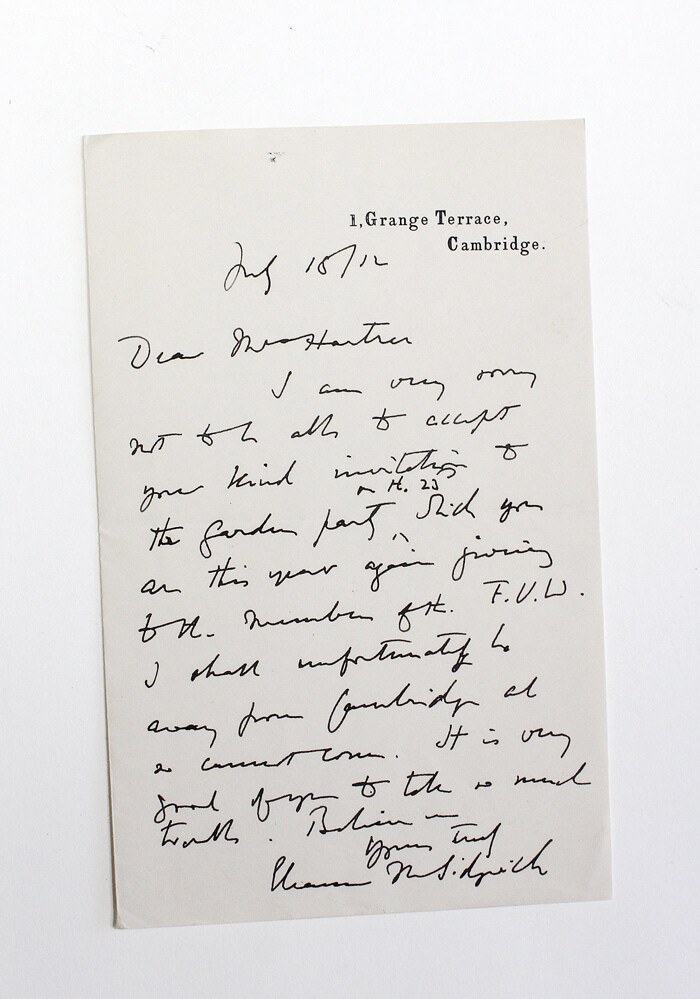 1, Grange Terrace,
Cambridge.
July 18/12
Dear Mrs Hartree
I am very sorry
not to be able to accept
your kind invitation to
on the 23
the garden party which you
are this year again giving
to the members of the F.U.W.
I shall unfortunately be
away from Cambridge and
so cannot come. It is very
good of you to take so much
trouble. Believe me
Yours truly
Eleanor M Sidgwick